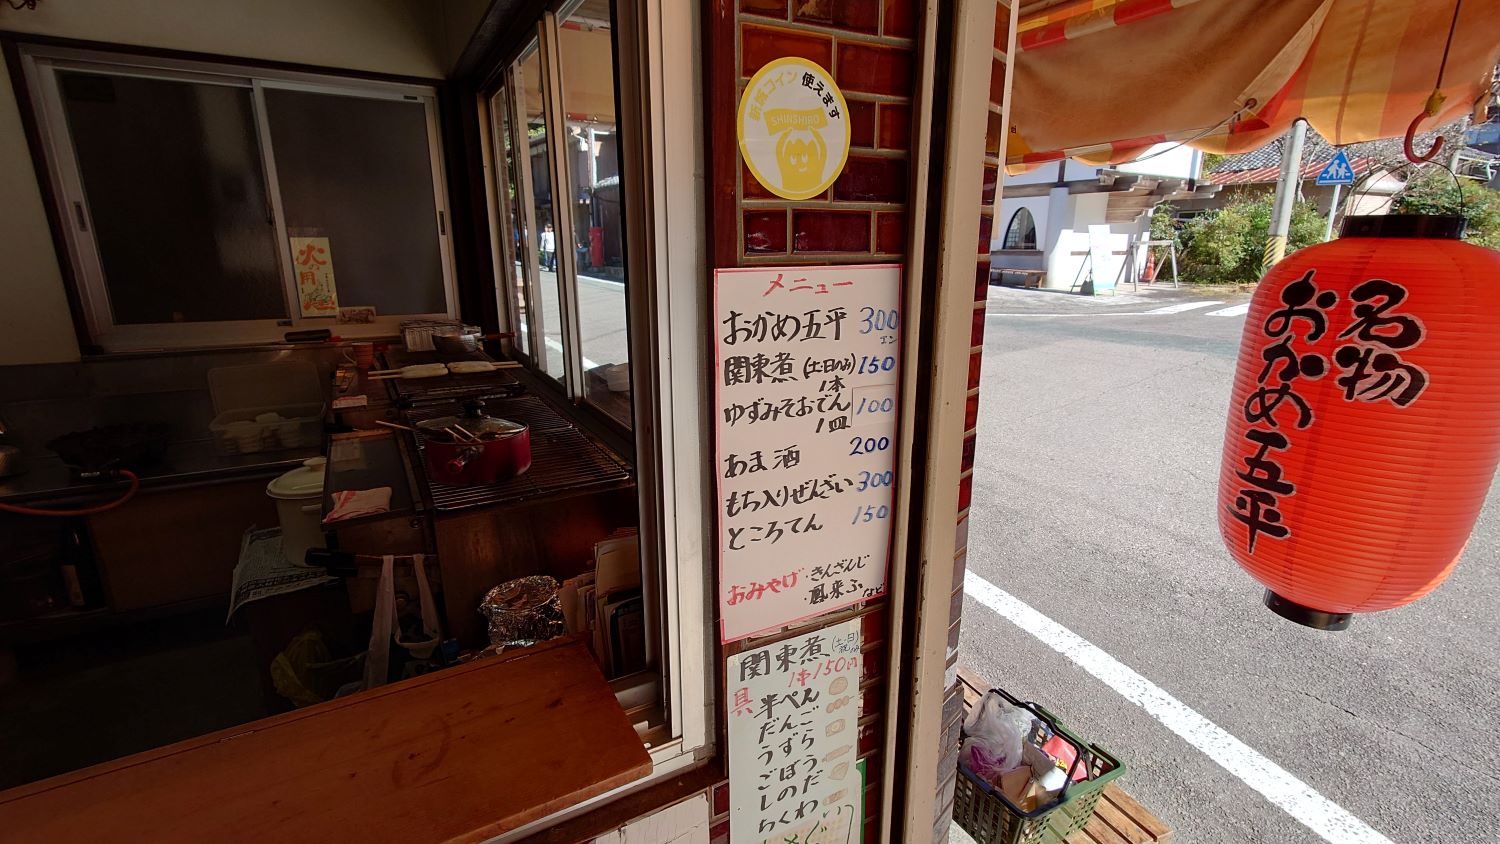 新城コイン使えます
SHINSHIRO
火の用
メニュー
おかめ五平 300
エン
関東煮 (土・日のみ) 150
1本
ゆずみそおでん 100
1皿
あま酒 200
もち入りぜんざい 300
ところてん 150
おみやげ ・きんざんじ
・鳳来ふ など
関東煮
1本150円
具 半ぺん
だんご
うずら
ごぼう
しのだ
ちくわ
名物
おかめ五平